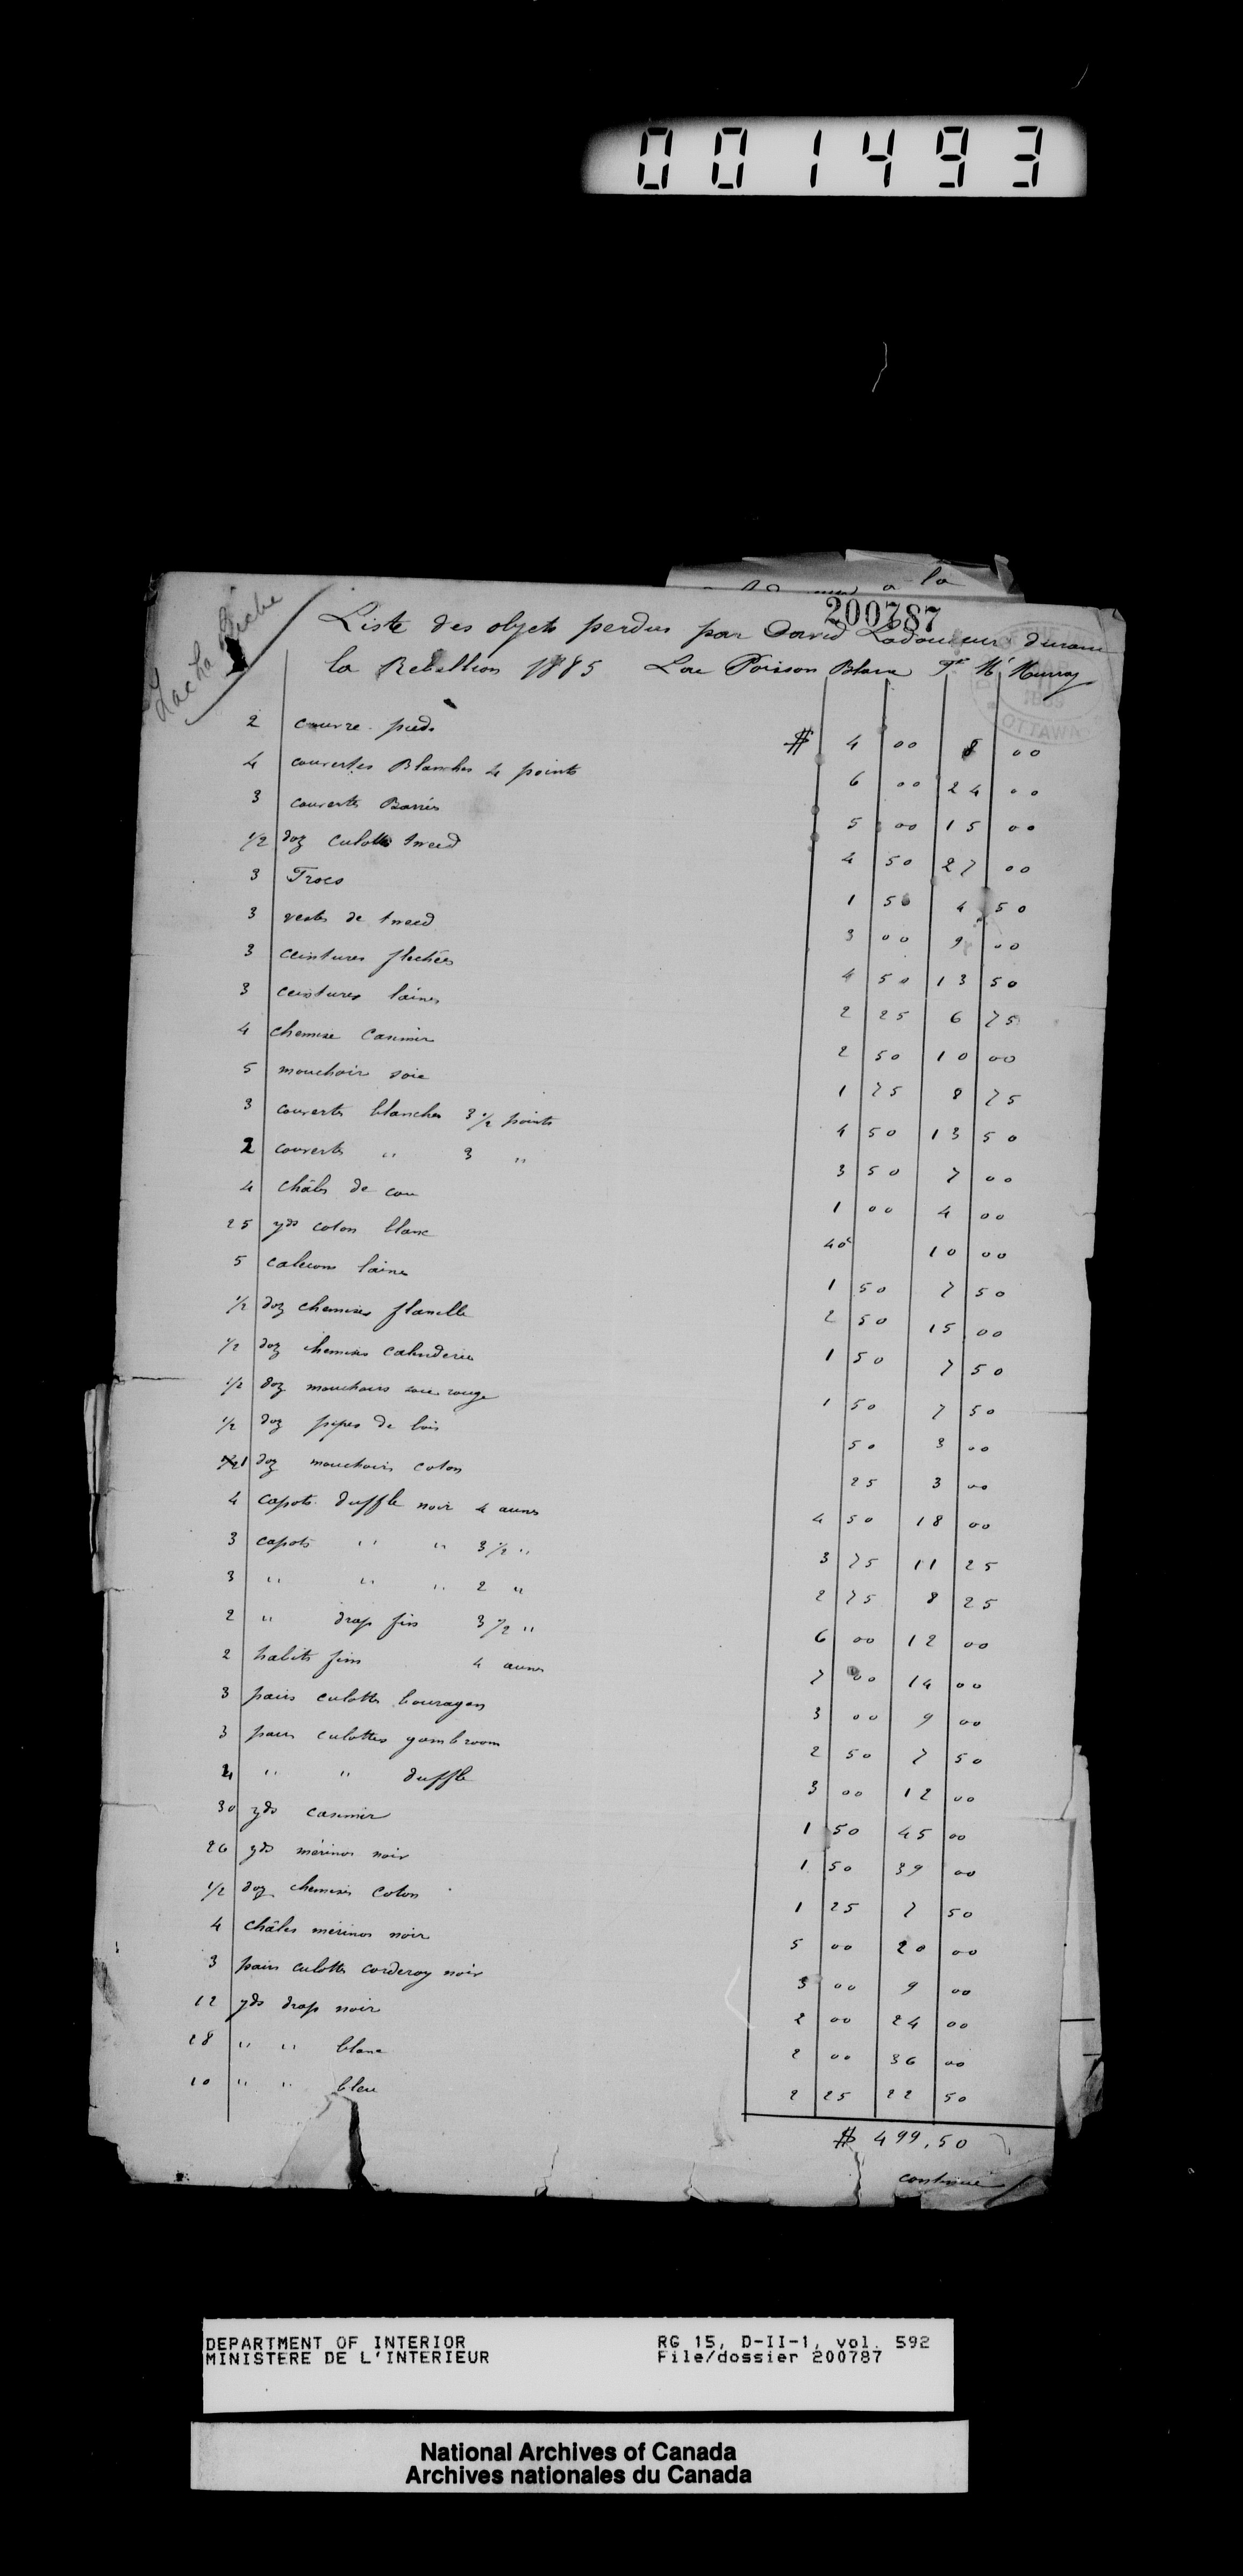 001493
a la
200787
Lac La Biche
Liste des objets perdus par David Ladouceur durant
la Rebellion 1885 Lac Poisson Blanc Tr Mc Murray
OTTAWA
2 couvre-pieds $ 4 00 8 00
4 couvertes Blanches 4 points 6 00 24 00
3 couvertes Barrés 5 00 15 00
1/2 doz culotte tweed 4 50 27 00
3 Frocs 1 50 4 50
3 vests de tweed 3 00 9 00
3 ceintures flechées 4 50 13 50
3 ceintures laines 2 25 6 75
4 chemise Casimir 2 50 10 00
5 mouchoir soie 1 75 8 75
3 couvertes blanches 3 1/2 points 4 50 13 50
2 couvertes " 3 " 3 50 7 00
4 châles de cou 1 00 4 00
25 yds coton blanc 40c 10 00
5 calecons laine 1 50 7 50
1/2 doz chemises flanelle 2 50 15 00
1/2 doz chemises 1 50 7 50
1/2 doz mouchoirs soie rouge 1 50 7 50
1/2 doz pipes de bois 50 3 00
1 doz mouchoirs coton 25 3 00
4 capots duffle noir 4 aunes 4 50 18 00
3 capots " " 3 1/2 " 3 75 11 25
3 " " " 2 " 2 75 8 25
2 " drap fin 3 1/2 " 6 00 12 00
2 habits fins 4 aunes 7 00 14 00
3 pairs culottes bouragan 3 00 9 00
3 pairs culottes gambroom 2 50 7 50
4 " " duffle 3 00 12 00
30 yds casimir 1 50 45 00
26 yds mérinos noir 1 50 39 00
1/2 doz chemises coton 1 25 7 50
4 châles mérinos noir 5 00 20 00
3 pairs culotte corderoy noir 3 00 9 00
12 yds drap noir 2 00 24 00
18 " " blanc 2 00 36 00
10 " " bleu 2 25 22 50
$ 499.50
continué
DEPARTMENT OF INTERIOR RG 15, D-II-1, vol. 592
MINISTERE DE L'INTERIEUR File/dossier 200787
National Archives of Canada
Archives nationales du Canada